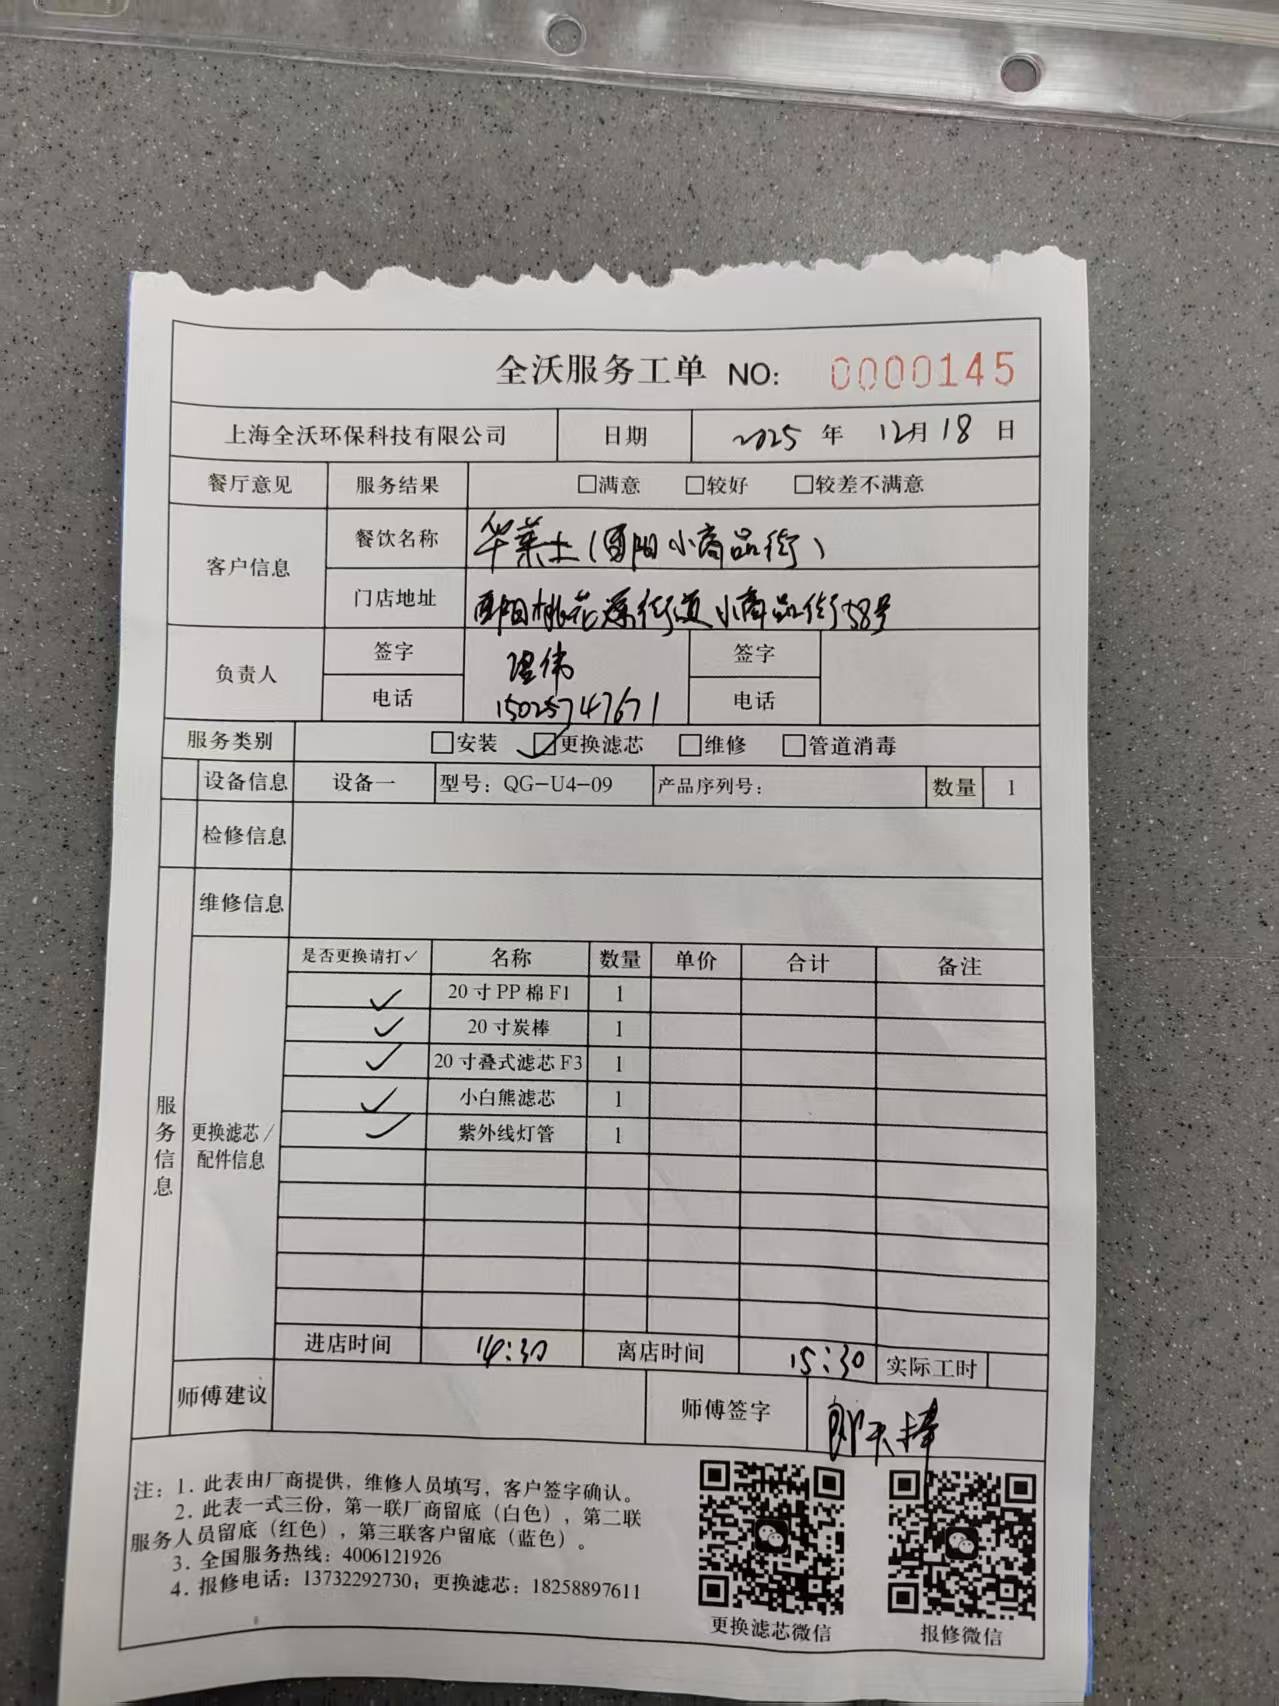 全沃服务工单 NO: 0000145
上海全沃环保科技有限公司 日期 2025 年 12月 18 日
餐厅意见 服务结果 □满意 □较好 □较差不满意
客户信息 餐饮名称 华莱士(酉阳小商品街)
门店地址 酉阳桃花源街道小商品街58号
负责人 签字 伟 签字
电话 15025747671 电话
服务类别 □安装 ☑更换滤芯 □维修 □管道消毒
设备信息 设备一 型号: QG-U4-09 产品序列号: 数量 1
检修信息
维修信息
服务信息
更换滤芯/
配件信息
是否更换请打✓ 名称 数量 单价 合计 备注
✓ 20寸PP棉F1 1
✓ 20寸炭棒 1
✓ 20寸叠式滤芯F3 1
✓ 小白熊滤芯 1
✓ 紫外线灯管 1
进店时间 14:30 离店时间 15:30 实际工时
师傅建议 师傅签字
注: 1. 此表由厂商提供，维修人员填写，客户签字确认。
2. 此表一式三份，第一联厂商留底（白色），第二联
服务人员留底（红色），第三联客户留底（蓝色）。
3. 全国服务热线: 4006121926
4. 报修电话: 13732292730; 更换滤芯: 18258897611
更换滤芯微信 报修微信